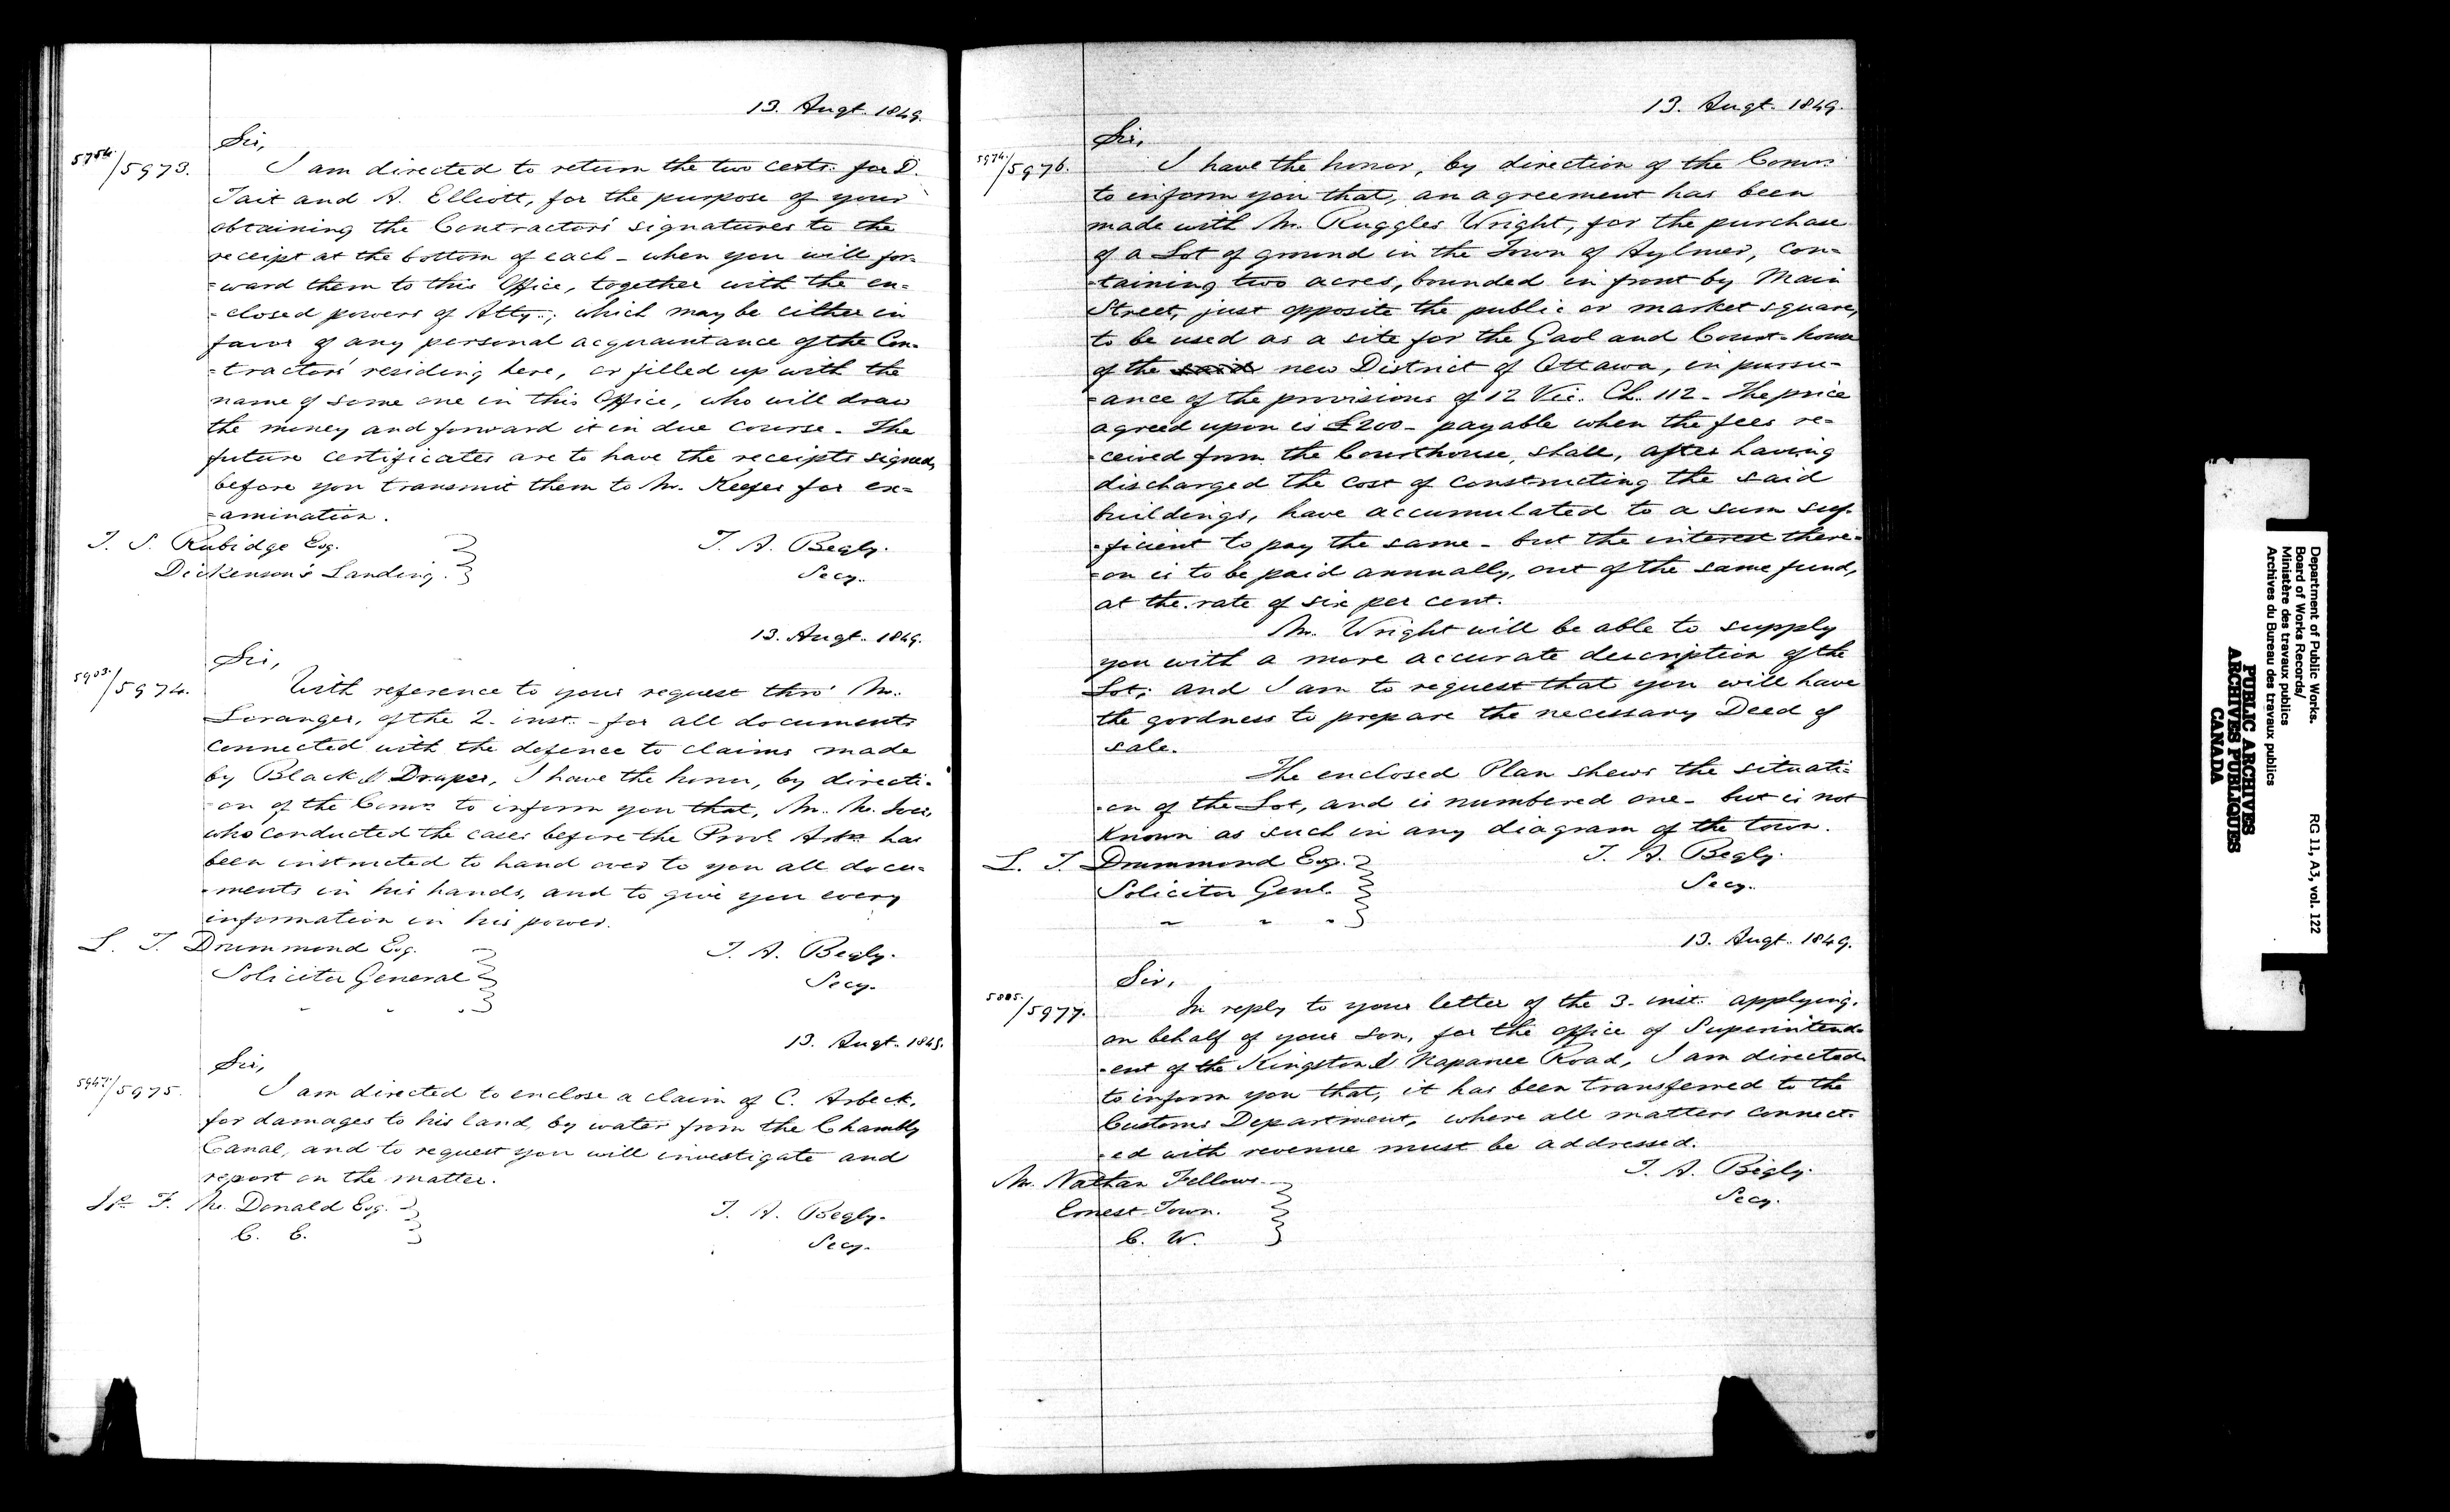 13. Augt. 1849.
Sir,
5754./5973. I am directed to return the two certs. for D.
Tait and A. Elliott, for the purpose of your
obtaining the Contractors' signatures to the
receipt at the bottom of each - when you will for=
=ward them to this Office, together with the en=
=closed powers of Atty.; which may be either in
favor of any personal acquaintance of the Con=
=tractors' residing here, or filled up with the
name of some one in this Office, who will draw
the money and forward it in due course - The
future certificates are to have the receipts signed,
before you transmit them to Mr. Keefer for ex=
=amination.
T. S. Rubidge Esq.
Dickenson's Landing.
T. A. Begly.
Secy.
13. Augt. 1849.
Sir,
5903./5974. With reference to your request thro' Mr.
Loranger, of the 2. inst. - for all documents
connected with the defence to claims made
by Black & Draper, I have the honor, by directi=
=on of the Comrs. to inform you that, Mr.
who conducted the cases before the Provl. Arbn. has
been instructed to hand over to you all docu=
=ments in his hands, and to give you every
information in his power.
L. T. Drummond Esq.
Solicitor General
" " "
T. A. Begly.
Secy.
13. Augt. 1849.
Sir,
5947./5975. I am directed to enclose a claim of C. Arbeck,
for damages to his land, by water from the Chambly
Canal, and to request you will investigate and
report on the matter.
F. McDonald Esq.
C. E.
T. A. Begly.
Secy.
13. Augt. 1849.
Sir,
5974./5976. I have the honor, by direction of the Comrs.
to inform you that, an agreement has been
made with Mr. Ruggles Wright, for the purchase
of a Lot of ground in the Town of Aylmer, con=
=taining two acres, bounded in front by Main
Street, just opposite the public or market square,
to be used as a site for the Gaol and Court-house
of the said new District of Ottawa, in pursu=
=ance of the provisions of 12 Vic. Ch. 112 - The price
agreed upon is £200 - payable when the fees re=
=ceived from the Courthouse, shall, after having
discharged the cost of constructing the said
buildings, have accumulated to a sum suf=
=ficient to pay the same - but the interest there=
=on is to be paid annually, out of the same fund,
at the rate of six per cent.
Mr. Wright will be able to supply
you with a more accurate description of the
Lot; and I am to request that you will have
the goodness to prepare the necessary Deed of
sale.
The enclosed Plan shews the situati=
=on of the Lot, and is numbered one - but is not
known as such in any diagram of the town.
L. T. Drummond Esq.
Solicitor Genl.
" " "
T. A. Begly.
Secy.
13. Augt. 1849.
Sir,
/5977. In reply to your letter of the 3. inst. applying,
on behalf of your son, for the office of Superintend=
=ent of the Kingston & Napanee Road, I am directed
to inform you that, it has been transferred to the
Customs Department, where all matters connect=
=ed with revenue must be addressed.
Mr. Nathan Fellows.
Ernest Town.
C. W.
T. A. Begly.
Secy.
Department of Public Works.
Board of Works Records/
Ministère des travaux publics
Archives du Bureau des travaux publics
RG 11, A3, vol. 122
PUBLIC ARCHIVES
ARCHIVES PUBLIQUES
CANADA